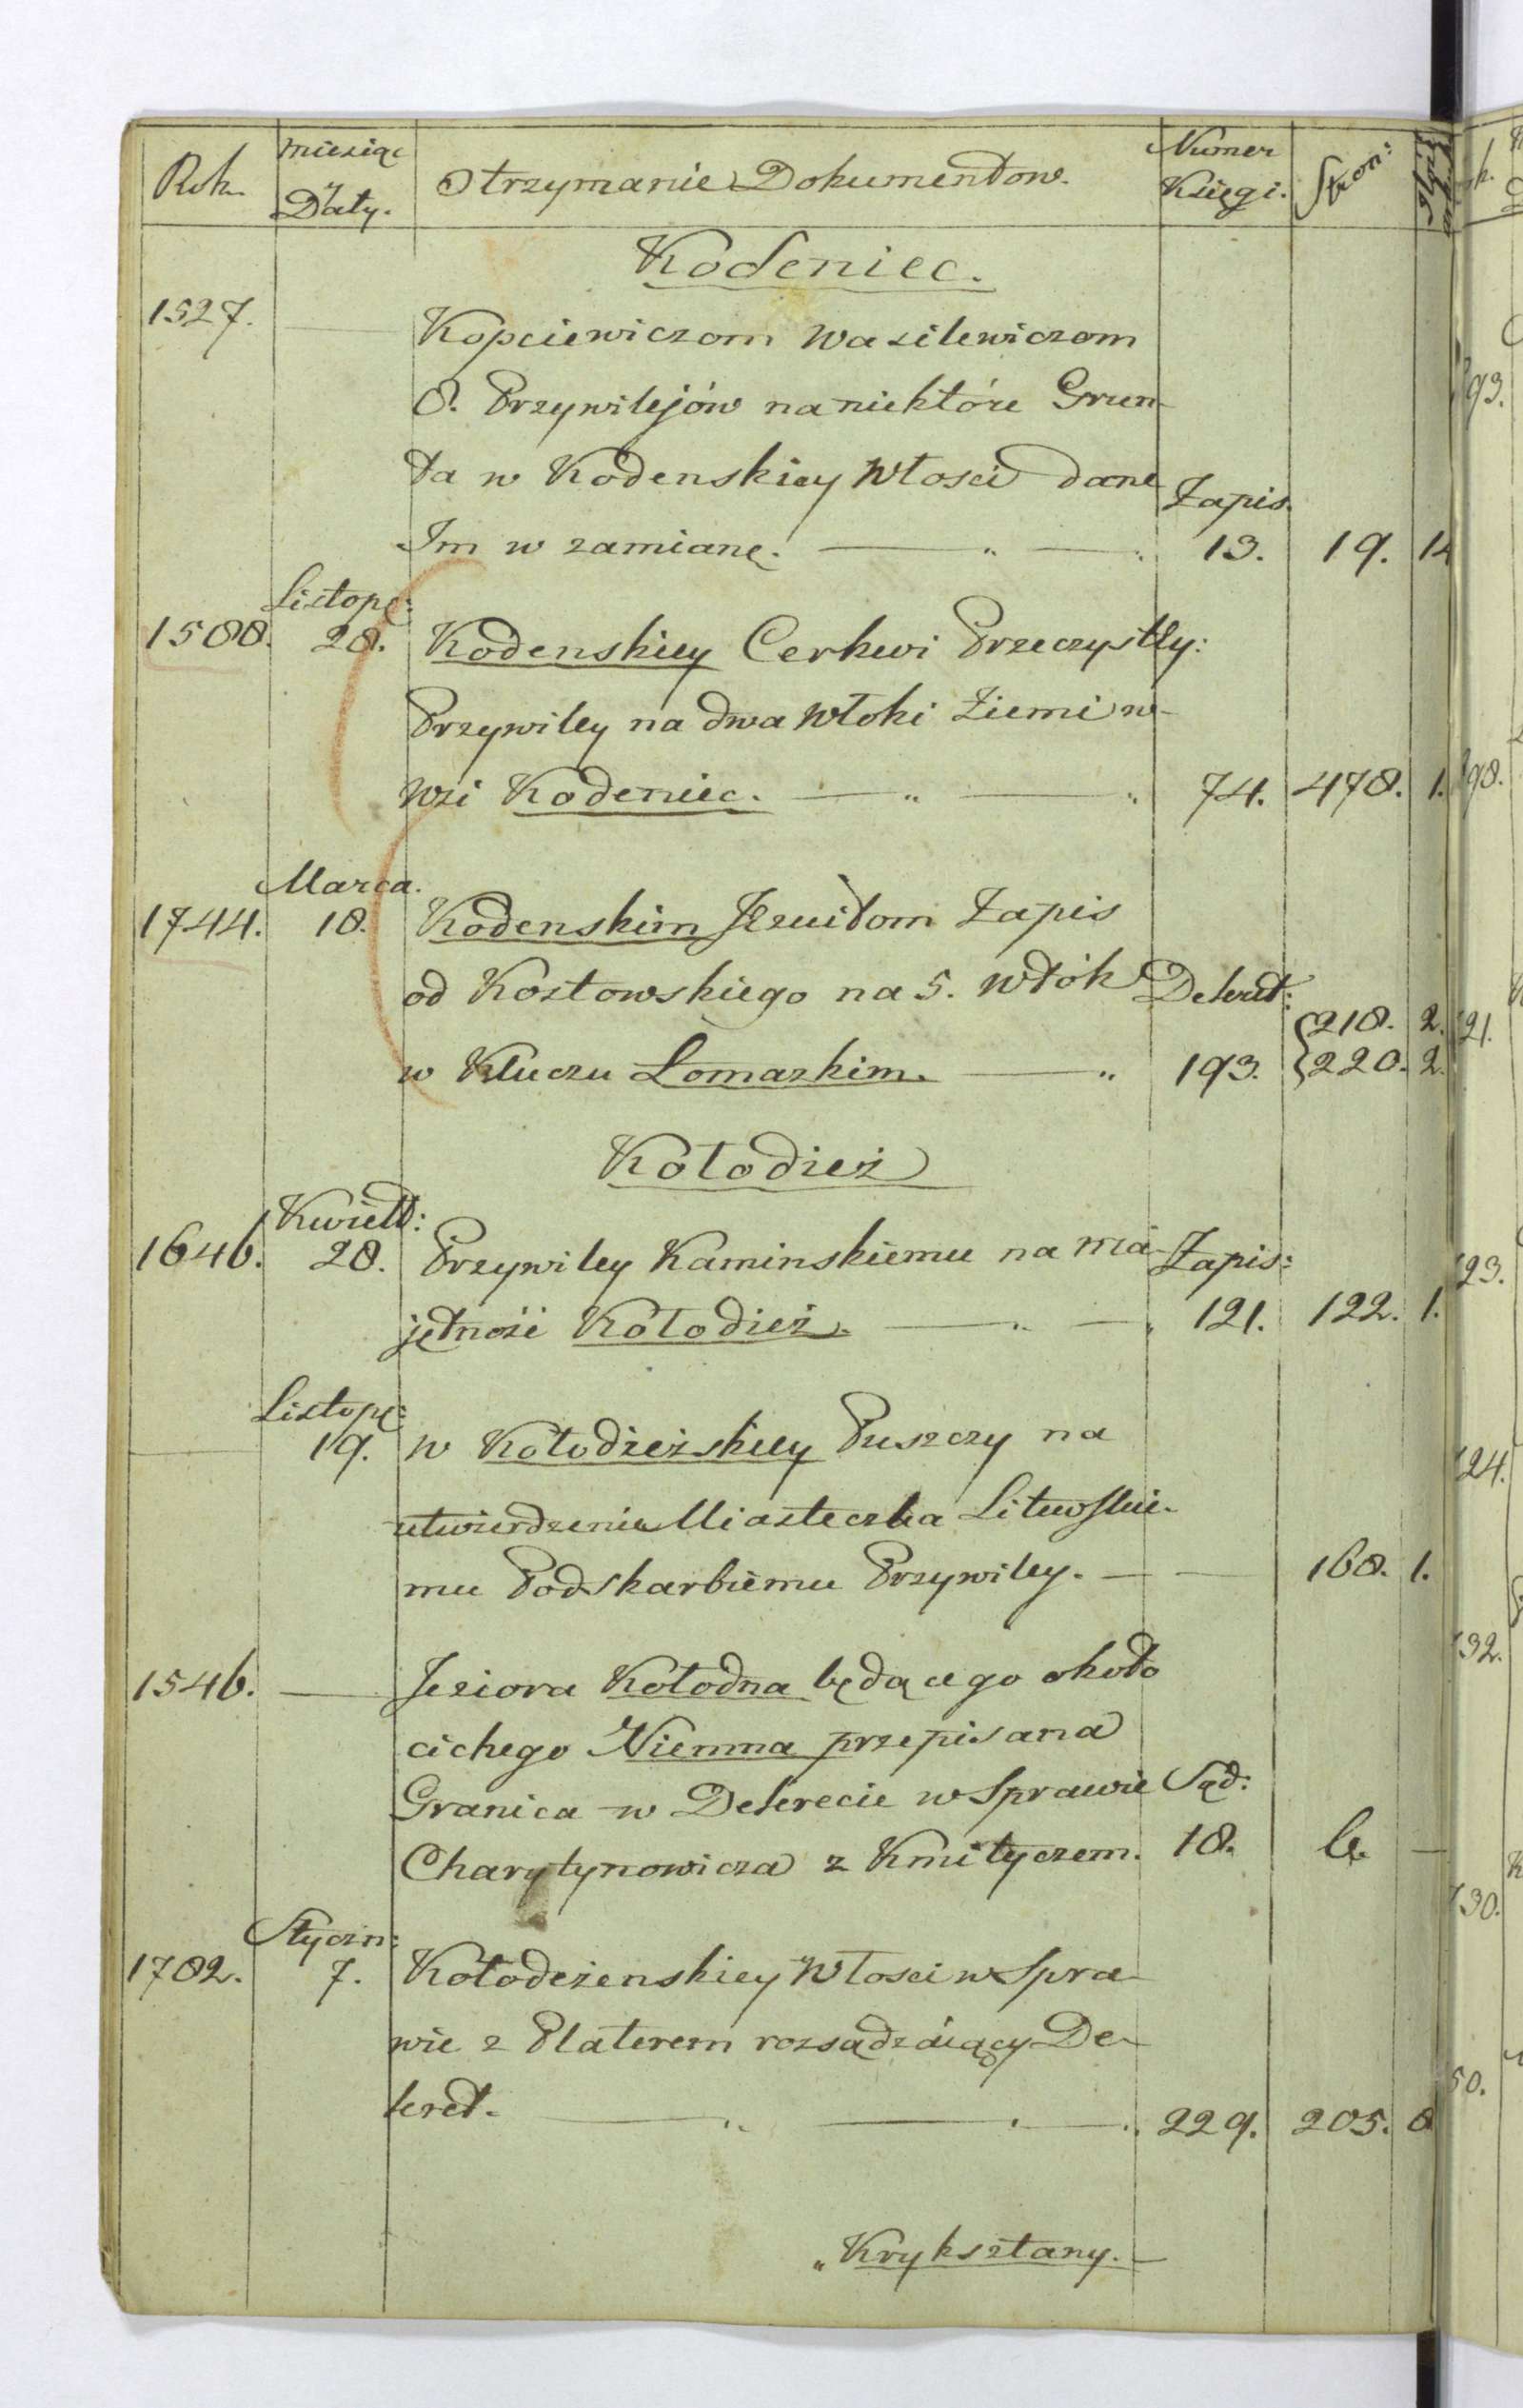 Rok. miesiąc y Daty. Otrzymanie Dokumentow. Numer Księgi. Stron:
Kodeniec.
1527. Kopciewiczom Wasilewiczom
8. Przywilejów na niektóre Grun-
ta w Kodenskiey Włosci dane Zapis.
Im w zamianę. 13. 19. 1
Listopa:
1588. 28. Kodenskiey Cerkwi Przeczystey:
Przywiley na dwa Włoki Ziemi w
Wsi Kodeniec. 74. 478. 1.
Marca.
1744. 18. Kodenskim Jezuitom Zapis
od Kozłowskiego na 5. Włók Dekret:
218. 2.
w Kluczu Łomazkim. 193. 220. 2.
Kołodież
Kwiet:
1646. 28. Przywiley Kaminskiemu na ma- Zapis:
jętność Kołodież. 121. 122. 1.
Listopa:
19. w Kołodzieżskiey Puszczy na
utwierdzenie Miasteczka Litewskie-
mu Podskarbiemu Przywiley. 168. 1.
1546. Jeziora Kołodna będącego około
cichego Niemna przepisana
Granica w Dekrecie w Sprawie Sąd:
Charytynowicza z Kmityczem. 18. 6.
Styczn:
1782. 7. Kołodeżenskiey Włosci w Spra-
wie z Platerem rozsądzaiący De-
kret. 229. 205. 8
Kryksztany.